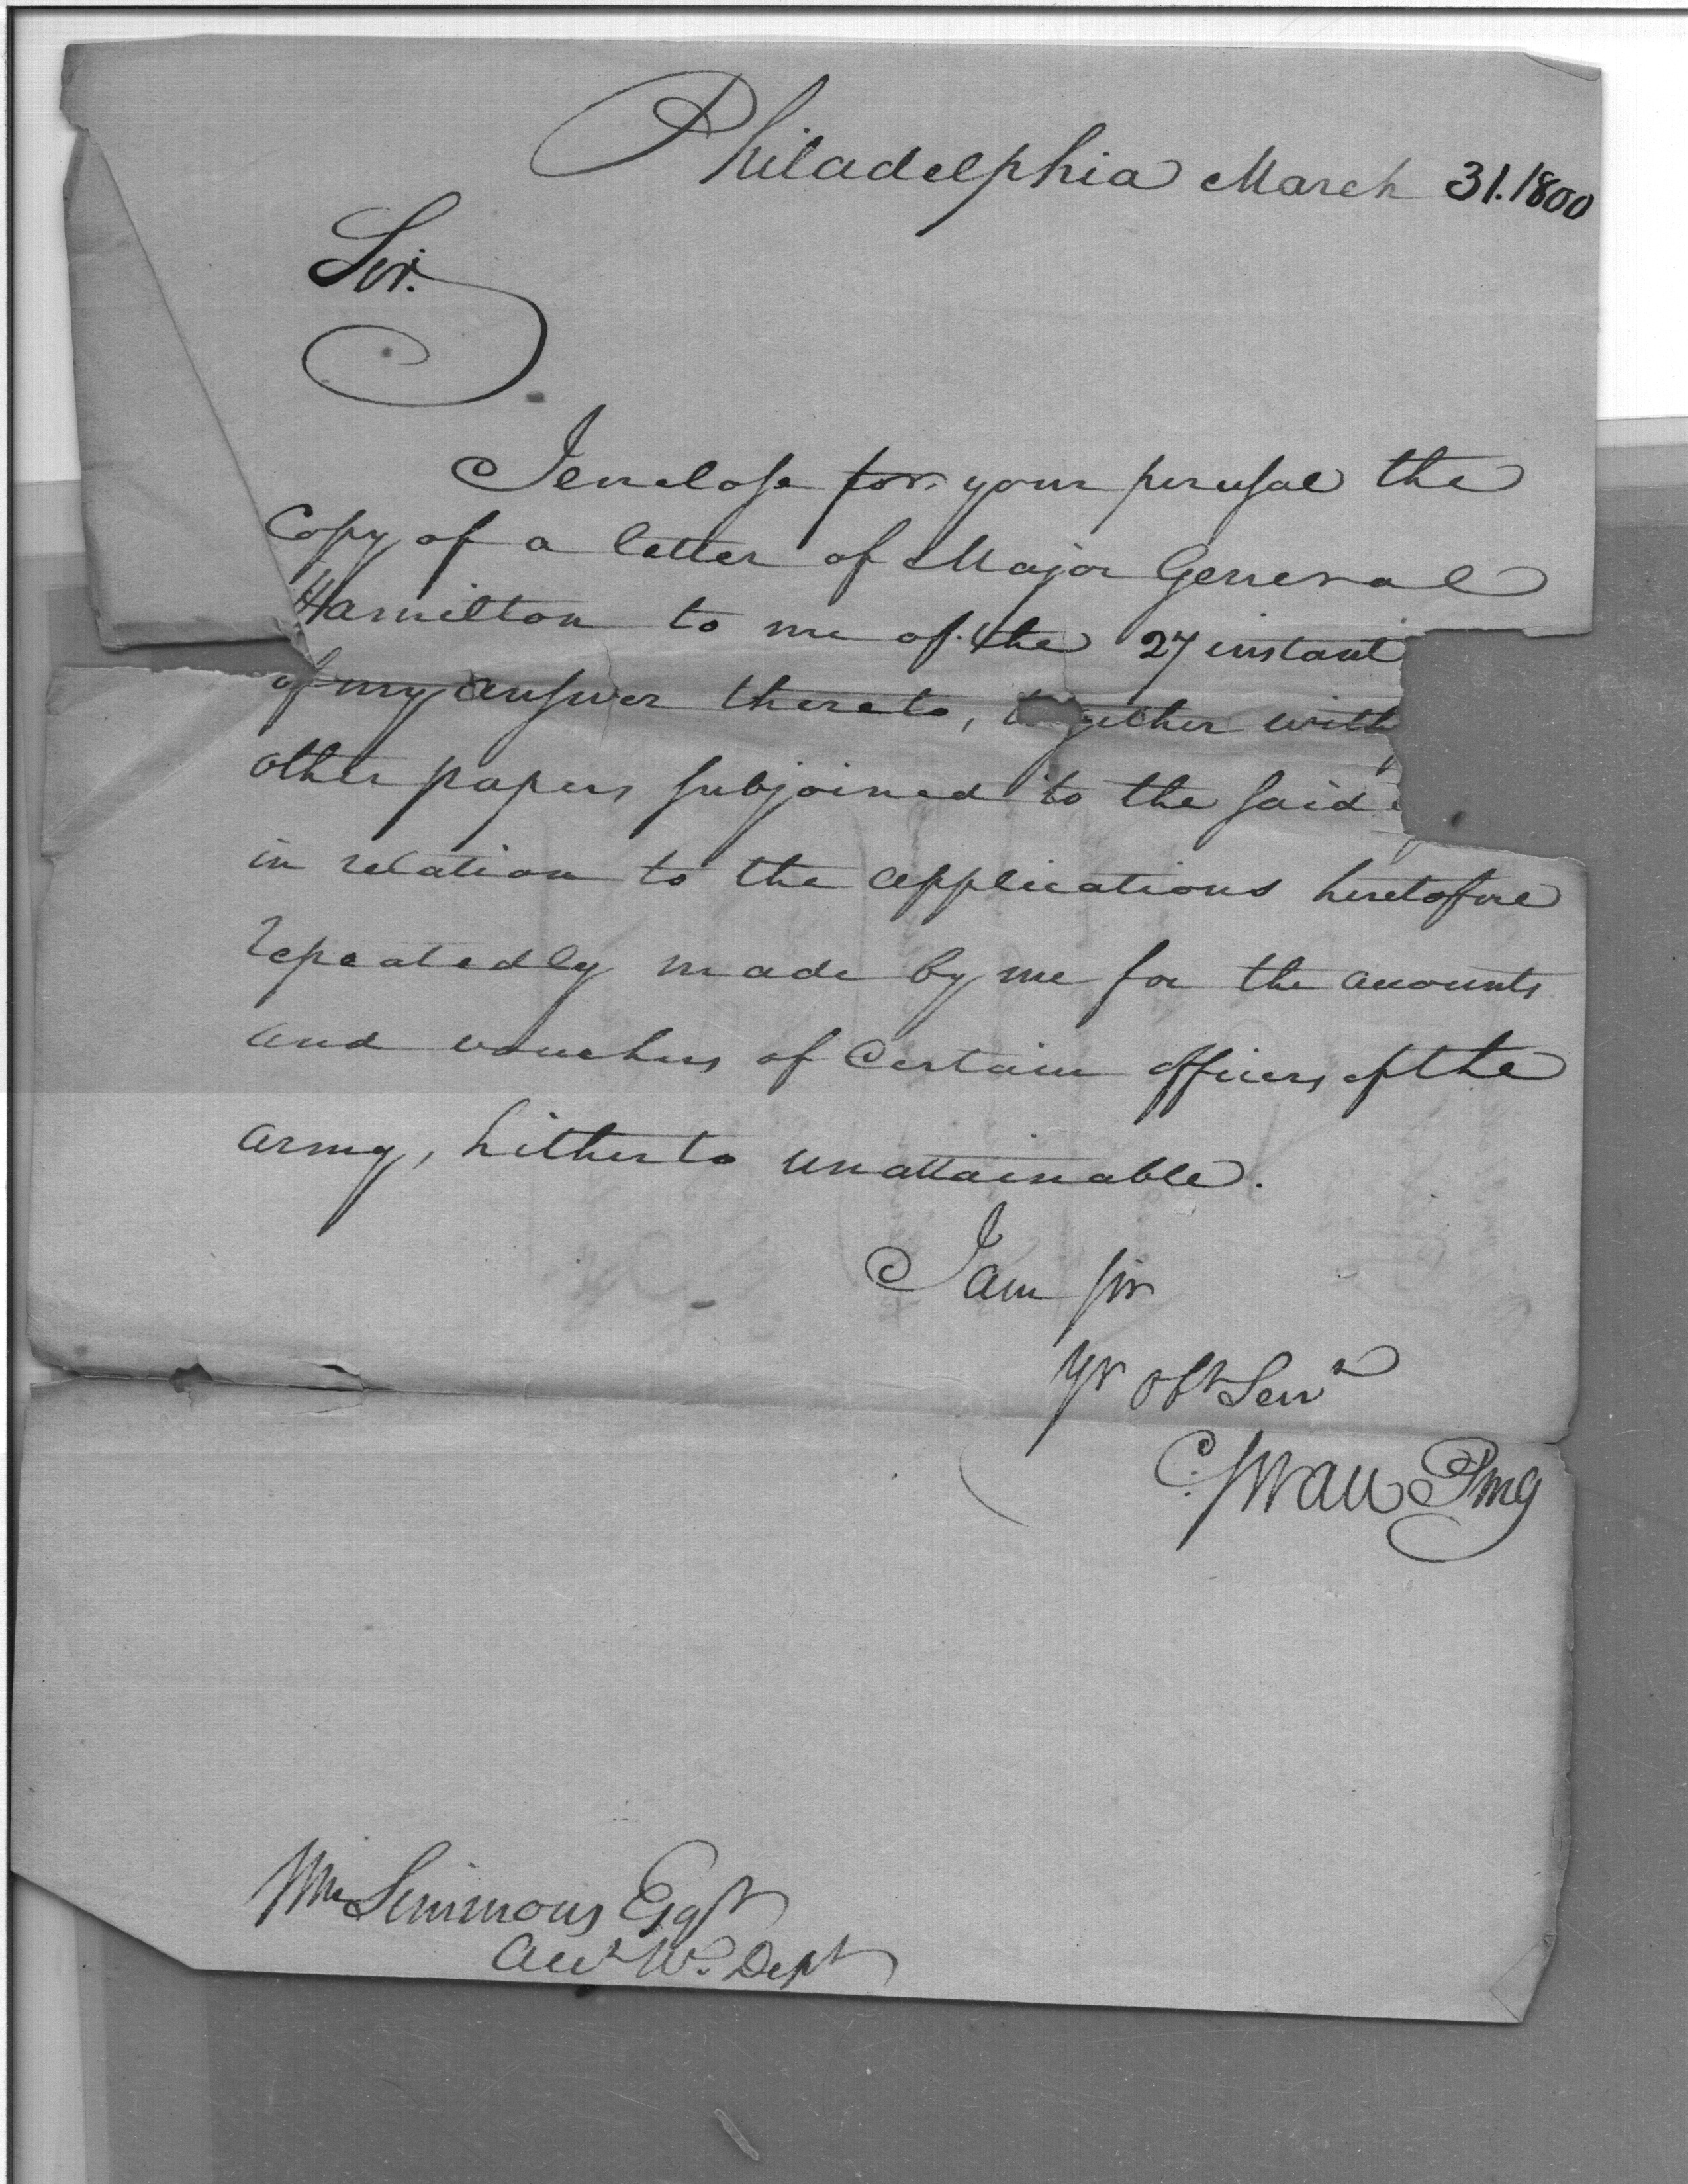 Philadelphia March 31. 1800
Sir.
I enclose for your perusal the
Copy of a letter of Major General
Hamilton to me of the 27 instant
of my answer thereto, together with
other papers subjoined to the said
in relation to the applications heretofore
repeatedly made by me for the accounts
and vouchers of Certain officers of the
army, hitherto unattainable.
I am sir
yr obt Servt
C. Swan PMG
Wm Simmons Esqr
Acct W. Dept